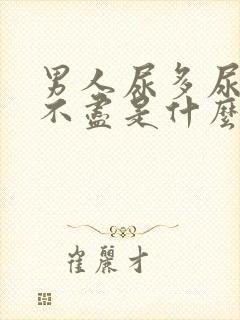 男人尿多尿
不盡是什麼
崔麗才